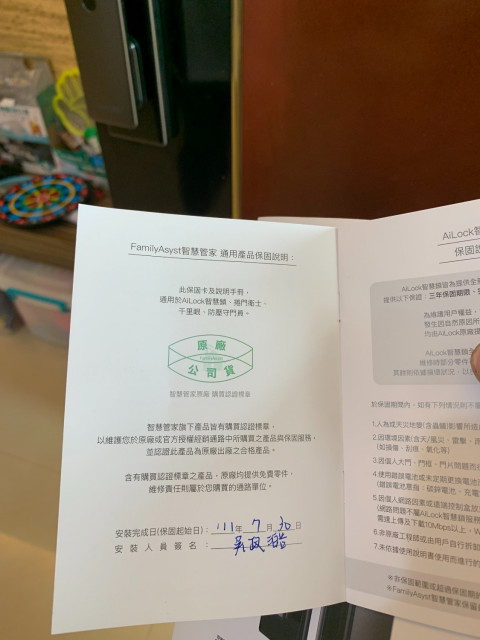 FamilyAsyst智慧管家 通用產品保固說明：
此保固卡及說明手冊，
適用於AiLock智慧鎖、接門衛士、
千里眼、防壓守門員。
原廠
公司貨
智慧管家原廠 購買認證標章
智慧管家旗下產品皆有購買認證標章，
以維護您於原廠或官方授權經銷通路中所購買之產品與保固服務，
並認證此產品為原廠出廠之合格產品。
含有購買認證標章之產品，原廠均提供免費零件，
維修責任則屬於您購買的通路單位。
安裝完成日(保固起始日)：111年 7 月 30 日
安裝人員簽名：
AiLock智
保固說
AiLock智慧鎖皆為提供全
提供以下保證：三年保固期間，
為維護用戶權益，
發生因自然原因所
均由AiLock原廠提
AiLock智慧鎖
於保固期間內，如有下列情況則不
1.人為或天災地變(含蟲蟻)影響所造
2.因環境因素(含天/風災、雷擊、
(如撞傷、刮痕、氧化等)
3.因個人大門、門框、門片問題而
4.使用錯誤電池或未定期更換電池
(錯誤電池意指：碳鋅電池、充電
5.因個人網路因素或遠端控制盒放
(網路問題不屬AiLock智慧鎖服務
需達上傳及下載10Mbps以上，W
6.非原廠工程師或由用戶自行拆卸
7.未依據使用說明書使用而進行的
※非保固範圍或超過保固期的
※FamilyAsyst智慧管家保留